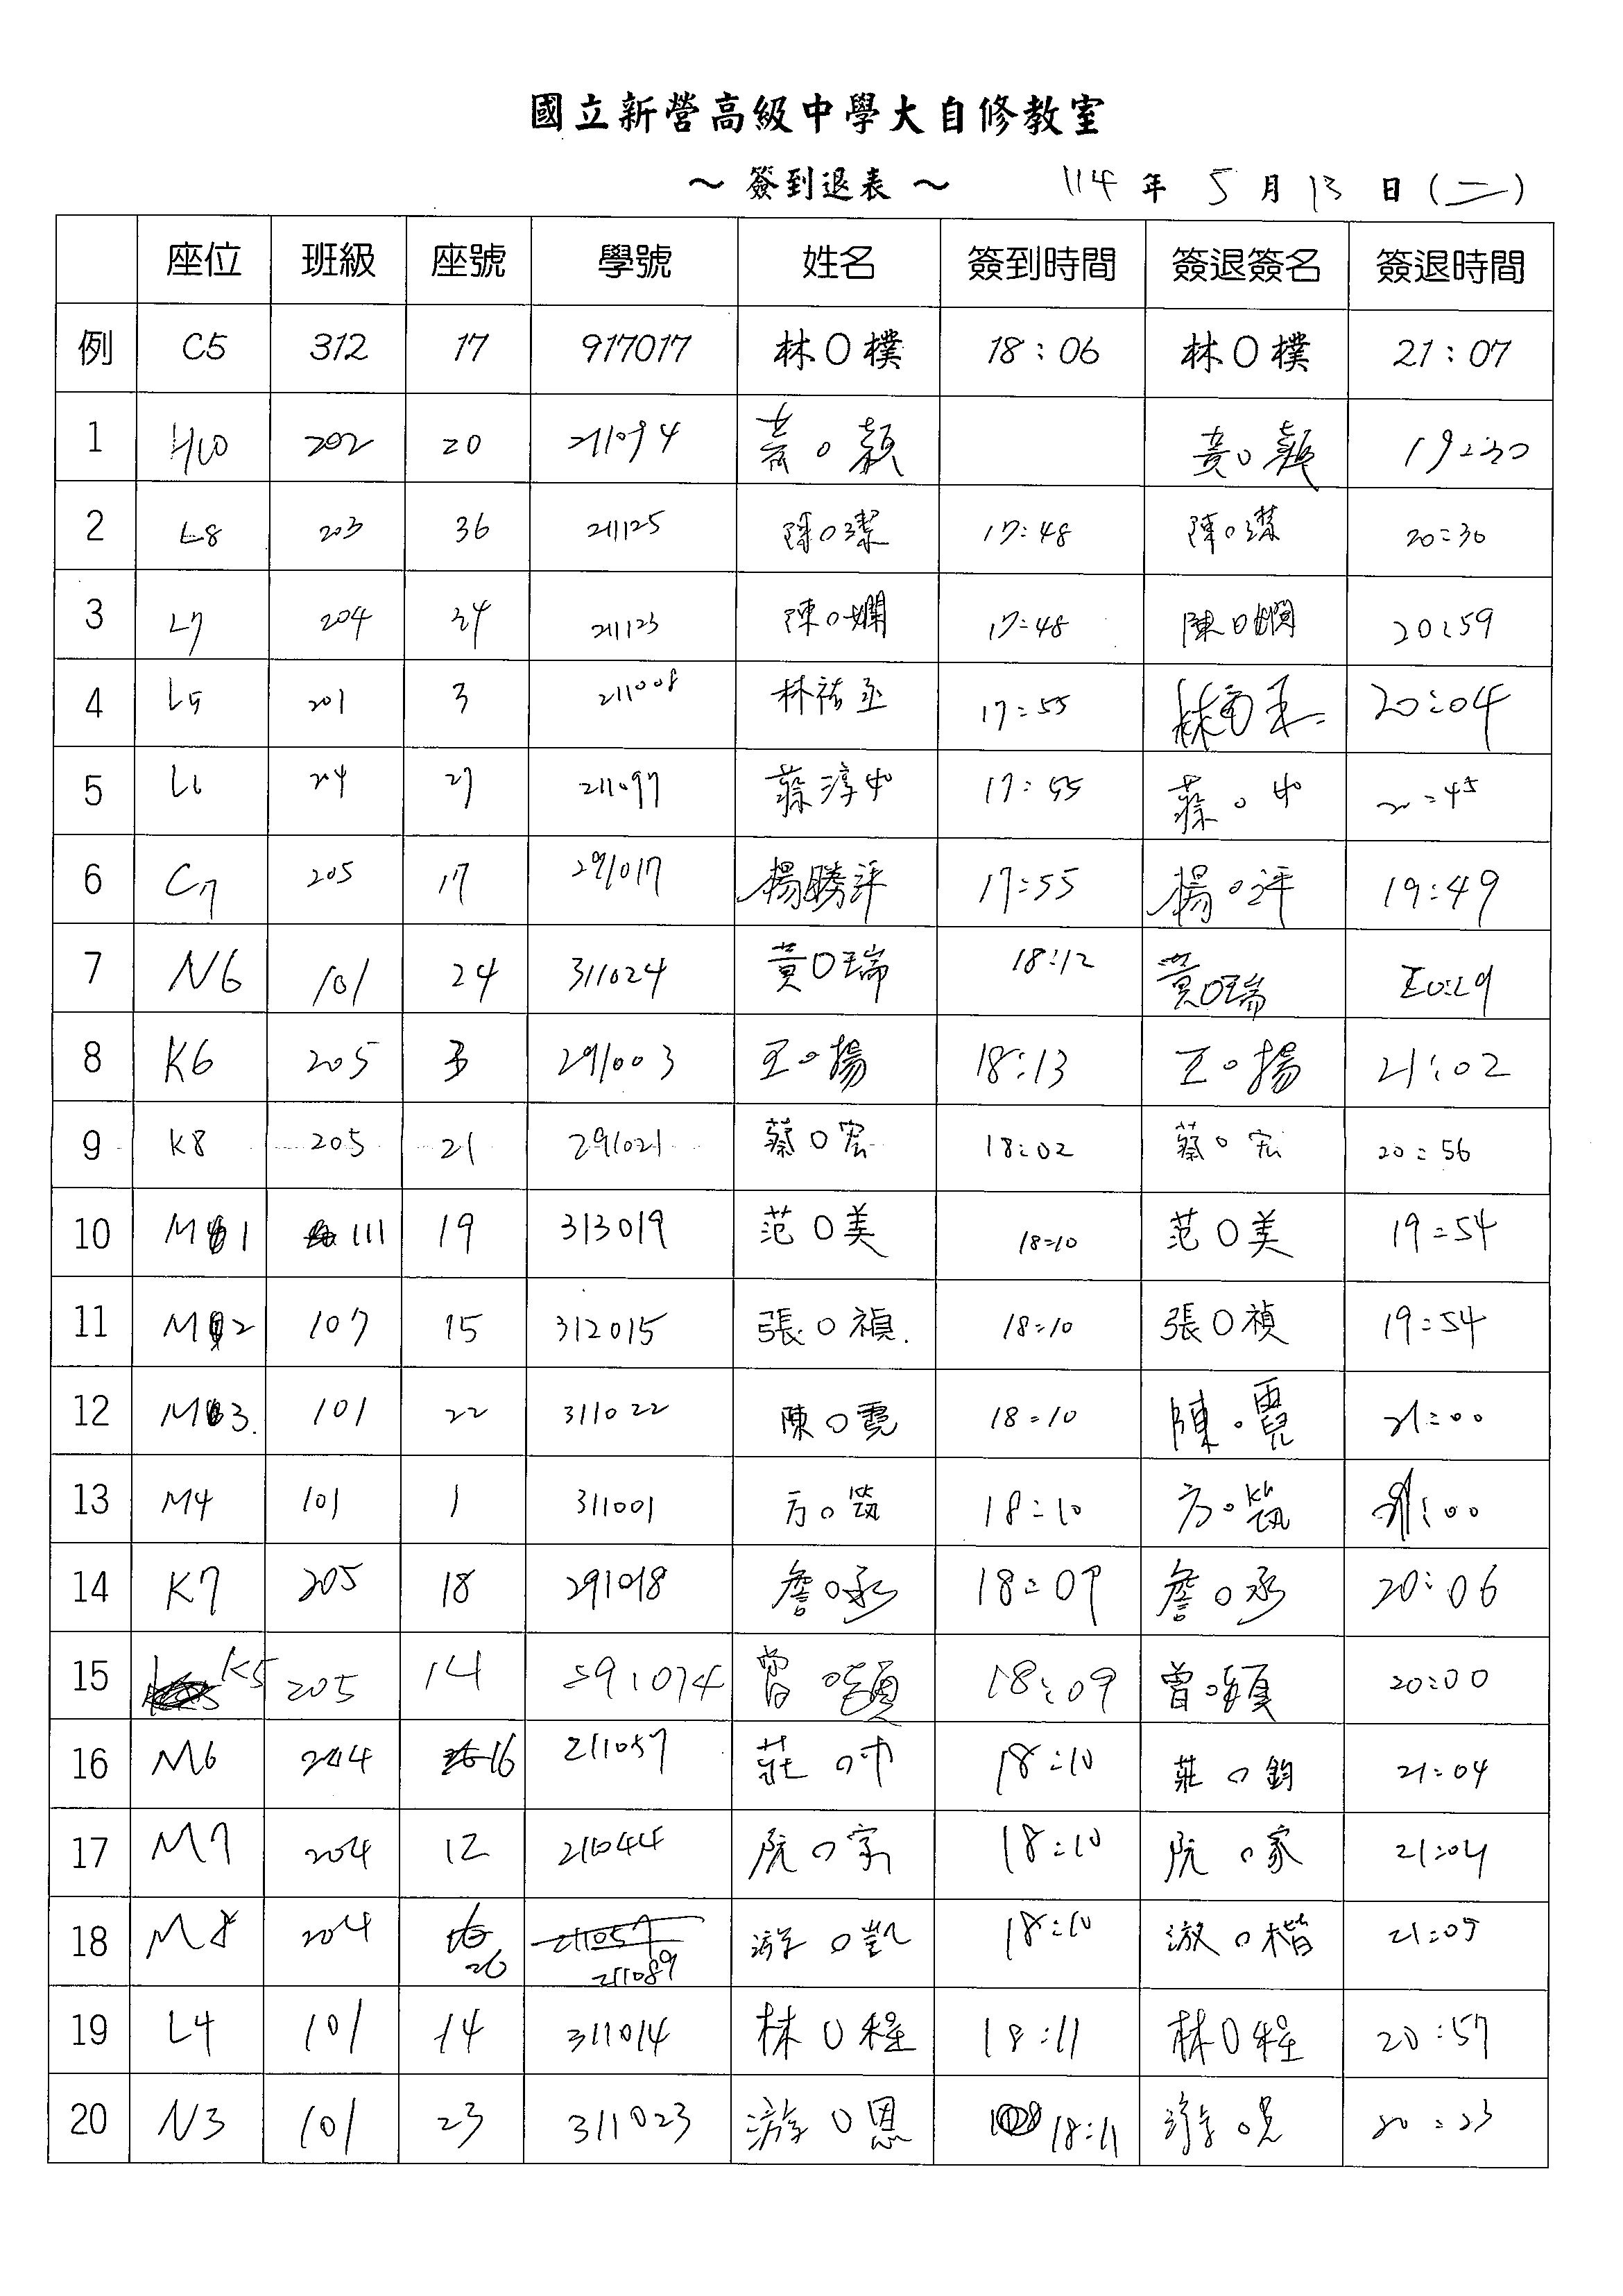 國立新營高級中學大自修教室
～ 簽到退表 ～ 114 年 5 月 13 日 (二)
座位 班級 座號 學號 姓名 簽到時間 簽退簽名 簽退時間
例 C5 312 17 917017 林O樸 18:06 林O樸 21:07
1 H10 202 20 211094 黃O穎 黃O 19:30
2 L8 203 36 211125 陳O潔 17:48 陳O潔 20:30
3 L7 204 34 211123 陳O嫻 17:48 陳O嫻 20:59
4 L5 201 3 211008 林祐丞 17:55 20:04
5 L6 204 27 211097 蔡淳 17:55 蔡O 20:45
6 C7 205 17 291017 楊勝評 17:55 楊O評 19:49
7 N6 101 24 311024 黃O瑞 18:12 黃O瑞 20:29
8 K6 205 3 291003 王O揚 18:13 王O揚 21:02
9 K8 205 21 291021 蔡O宏 18:02 蔡O宏 20:56
10 M1 111 19 313019 范O美 18:10 范O美 19:54
11 M2 107 15 312015 張O禎 18:10 張O禎 19:54
12 M3. 101 22 311022 陳O霓 18:10 陳O霓 21:00
13 M4 101 1 311001 方O筑 18:10 方O筑 21:00
14 K7 205 18 291018 詹O承 18:09 詹O承 20:06
15 K5 205 14 291014 曾O穎 18:09 曾O穎 20:00
16 M6 204 16 211057 莊O 18:10 莊O鈞 21:04
17 M7 204 12 211044 阮O家 18:10 阮O家 21:04
18 M8 204 26 211057 211089 游O凱 18:10 游O楷 21:05
19 L4 101 14 311014 林O程 18:11 林O程 20:57
20 N3 101 23 311023 游O恩 18:11 游O恩 20:23